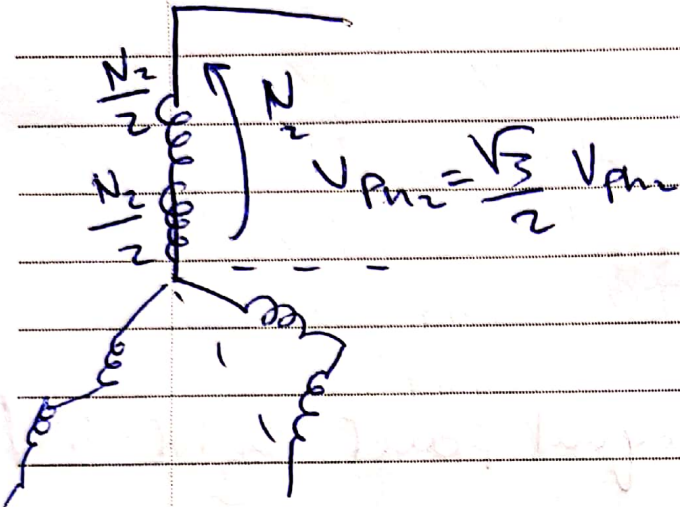 N₂/2
N₂
N₂/2
V_Ph₂ = √3/2 V_Ph₂